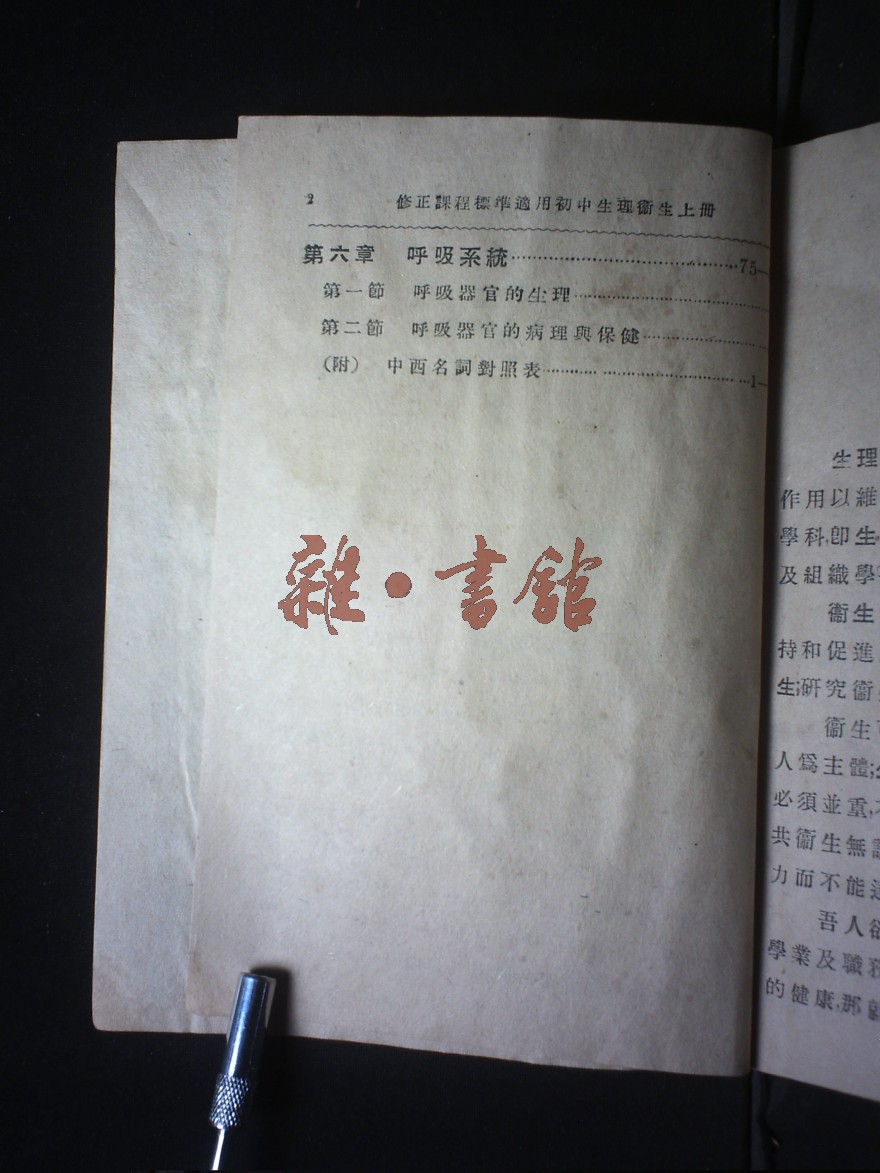 2 修正課程標準適用初中生理衞生上册
第六章 呼吸系統……………………………75—
第一節 呼吸器官的生理……………………
第二節 呼吸器官的病理與保健……………
(附) 中西名詞對照表……………………1—
雜·書館
生理
作用以維
學科,卽生
及組織學
衞生
持和促進
生;研究衞
衞生
人爲主體;
必須並重,
共衞生無
力而不能
吾人欲
學業及職務
的健康,那